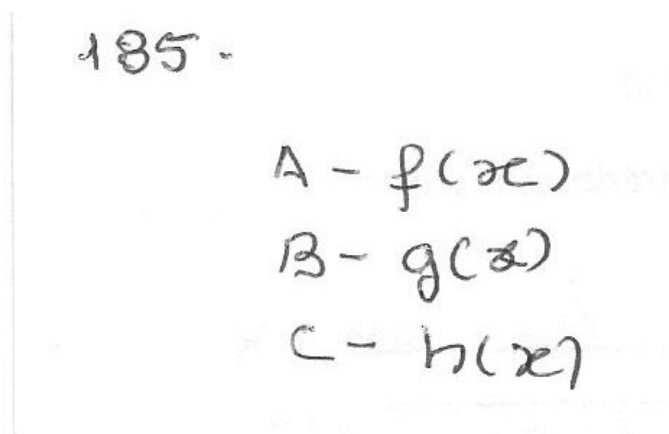 185.
A - f(x)
B - g(x)
C - h(x)